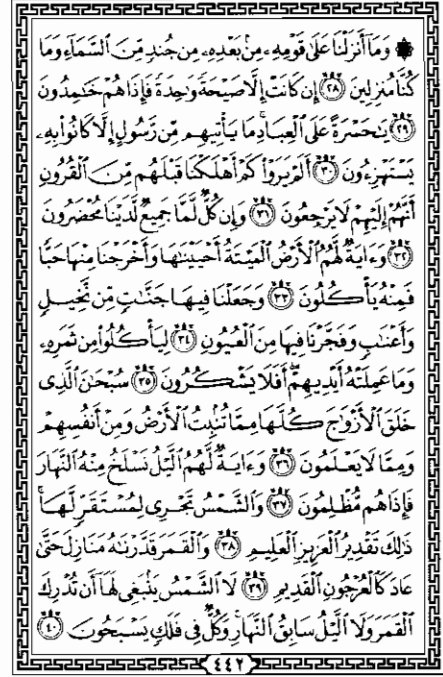 ۞ وَمَآ أَنزَلْنَا عَلَىٰ قَوْمِهِۦ مِنۢ بَعْدِهِۦ مِن جُندٍ مِّنَ ٱلسَّمَآءِ وَمَا
كُنَّا مُنزِلِينَ ٢٨ إِن كَانَتْ إِلَّا صَيْحَةً وَٰحِدَةً فَإِذَا هُمْ خَٰمِدُونَ
٢٩ يَٰحَسْرَةً عَلَى ٱلْعِبَادِ مَا يَأْتِيهِم مِّن رَّسُولٍ إِلَّا كَانُوا۟ بِهِۦ
يَسْتَهْزِءُونَ ٣٠ أَلَمْ يَرَوْا۟ كَمْ أَهْلَكْنَا قَبْلَهُم مِّنَ ٱلْقُرُونِ
أَنَّهُمْ إِلَيْهِمْ لَا يَرْجِعُونَ ٣١ وَإِن كُلٌّ لَّمَّا جَمِيعٌ لَّدَيْنَا مُحْضَرُونَ
٣٢ وَءَايَةٌ لَّهُمُ ٱلْأَرْضُ ٱلْمَيْتَةُ أَحْيَيْنَٰهَا وَأَخْرَجْنَا مِنْهَا حَبًّا
فَمِنْهُ يَأْكُلُونَ ٣٣ وَجَعَلْنَا فِيهَا جَنَّٰتٍ مِّن نَّخِيلٍ
وَأَعْنَٰبٍ وَفَجَّرْنَا فِيهَا مِنَ ٱلْعُيُونِ ٣٤ لِيَأْكُلُوا۟ مِن ثَمَرِهِۦ
وَمَا عَمِلَتْهُ أَيْدِيهِمْ أَفَلَا يَشْكُرُونَ ٣٥ سُبْحَٰنَ ٱلَّذِى
خَلَقَ ٱلْأَزْوَٰجَ كُلَّهَا مِمَّا تُنۢبِتُ ٱلْأَرْضُ وَمِنْ أَنفُسِهِمْ
وَمِمَّا لَا يَعْلَمُونَ ٣٦ وَءَايَةٌ لَّهُمُ ٱلَّيْلُ نَسْلَخُ مِنْهُ ٱلنَّهَارَ
فَإِذَا هُم مُّظْلِمُونَ ٣٧ وَٱلشَّمْسُ تَجْرِى لِمُسْتَقَرٍّ لَّهَا
ذَٰلِكَ تَقْدِيرُ ٱلْعَزِيزِ ٱلْعَلِيمِ ٣٨ وَٱلْقَمَرَ قَدَّرْنَٰهُ مَنَازِلَ حَتَّىٰ
عَادَ كَٱلْعُرْجُونِ ٱلْقَدِيمِ ٣٩ لَا ٱلشَّمْسُ يَنۢبَغِى لَهَآ أَن تُدْرِكَ
ٱلْقَمَرَ وَلَا ٱلَّيْلُ سَابِقُ ٱلنَّهَارِ وَكُلٌّ فِى فَلَكٍ يَسْبَحُونَ ٤٠
٤٤٢